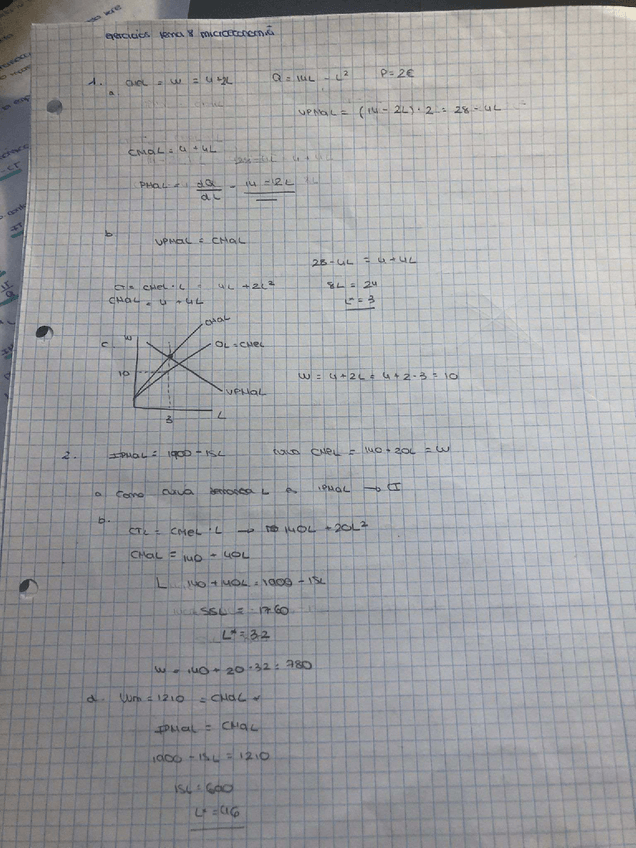 ejercicios tema 8 microeconomía
1. a CMeL = W = 4+2L Q = 14L - L² P=2€
VPMaL = (14 - 2L) · 2 = 28 - 4L
CMaL = 4 + 4L
PMaL = dQ/dL = 14 - 2L
b
VPMaL = CMaL
28-4L = 4+4L
CT = CMeL · L = 4L + 2L²
8L = 24
CMaL = 4 + 4L
L* = 3
c. W CMaL
OL = CMeL
10
W = 4+2L = 4+2·3 = 10
VPMaL
3 L
2. IPMaL = 1900 - 15L curva CMeL = 140 + 20L = W
a Como curva L es IPMaL → CI
b. CTL = CMeL · L → 140L + 20L²
CMaL = 140 + 40L
L 140 + 40L = 1900 - 15L
55L = 1760
L* = 32
W = 140 + 20·32 = 780
d. Wm = 1210 = CMaL
IPMaL = CMaL
1900 - 15L = 1210
15L = 690
L* = 46